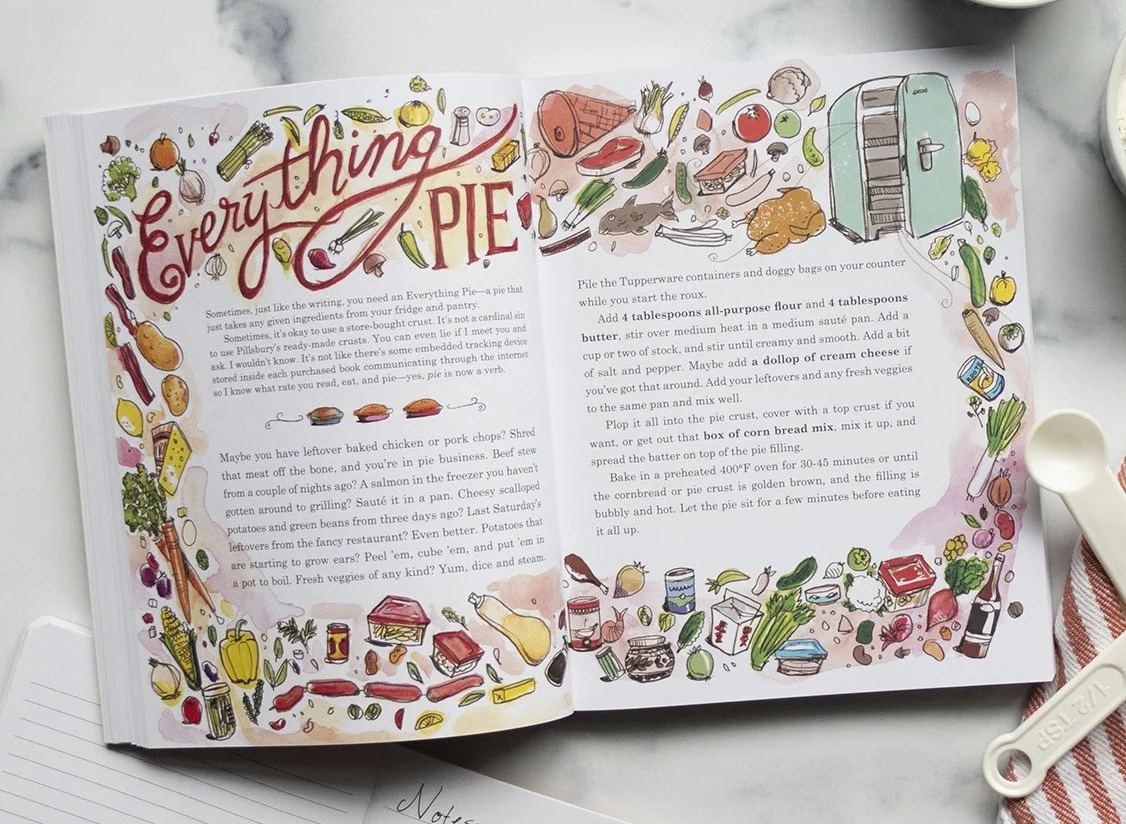 Everything
PIE
Sometimes, just like the writing, you need an Everything Pie—a pie that
just takes any given ingredients from your fridge and pantry.
Sometimes, it's okay to use a store-bought crust. It's not a cardinal sin
to use Pillsbury's ready-made crusts. You can even lie if I meet you and
ask. I wouldn't know. It's not like there's some embedded tracking device
stored inside each purchased book communicating through the internet
so I know what rate you read, eat, and pie—yes, pie is now a verb.
Maybe you have leftover baked chicken or pork chops? Shred
that meat off the bone, and you're in pie business. Beef stew
from a couple of nights ago? A salmon in the freezer you haven't
gotten around to grilling? Sauté it in a pan. Cheesy scalloped
potatoes and green beans from three days ago? Last Saturday's
leftovers from the fancy restaurant? Even better. Potatoes that
are starting to grow ears? Peel 'em, cube 'em, and put 'em in
a pot to boil. Fresh veggies of any kind? Yum, dice and steam.
Pile the Tupperware containers and doggy bags on your counter
while you start the roux.
Add 4 tablespoons all-purpose flour and 4 tablespoons
butter, stir over medium heat in a medium sauté pan. Add a
cup or two of stock, and stir until creamy and smooth. Add a bit
of salt and pepper. Maybe add a dollop of cream cheese if
you've got that around. Add your leftovers and any fresh veggies
to the same pan and mix well.
Plop it all into the pie crust, cover with a top crust if you
want, or get out that box of corn bread mix, mix it up, and
spread the batter on top of the pie filling.
Bake in a preheated 400°F oven for 30-45 minutes or until
the cornbread or pie crust is golden brown, and the filling is
bubbly and hot. Let the pie sit for a few minutes before eating
it all up.
1/2 TSP
Notes